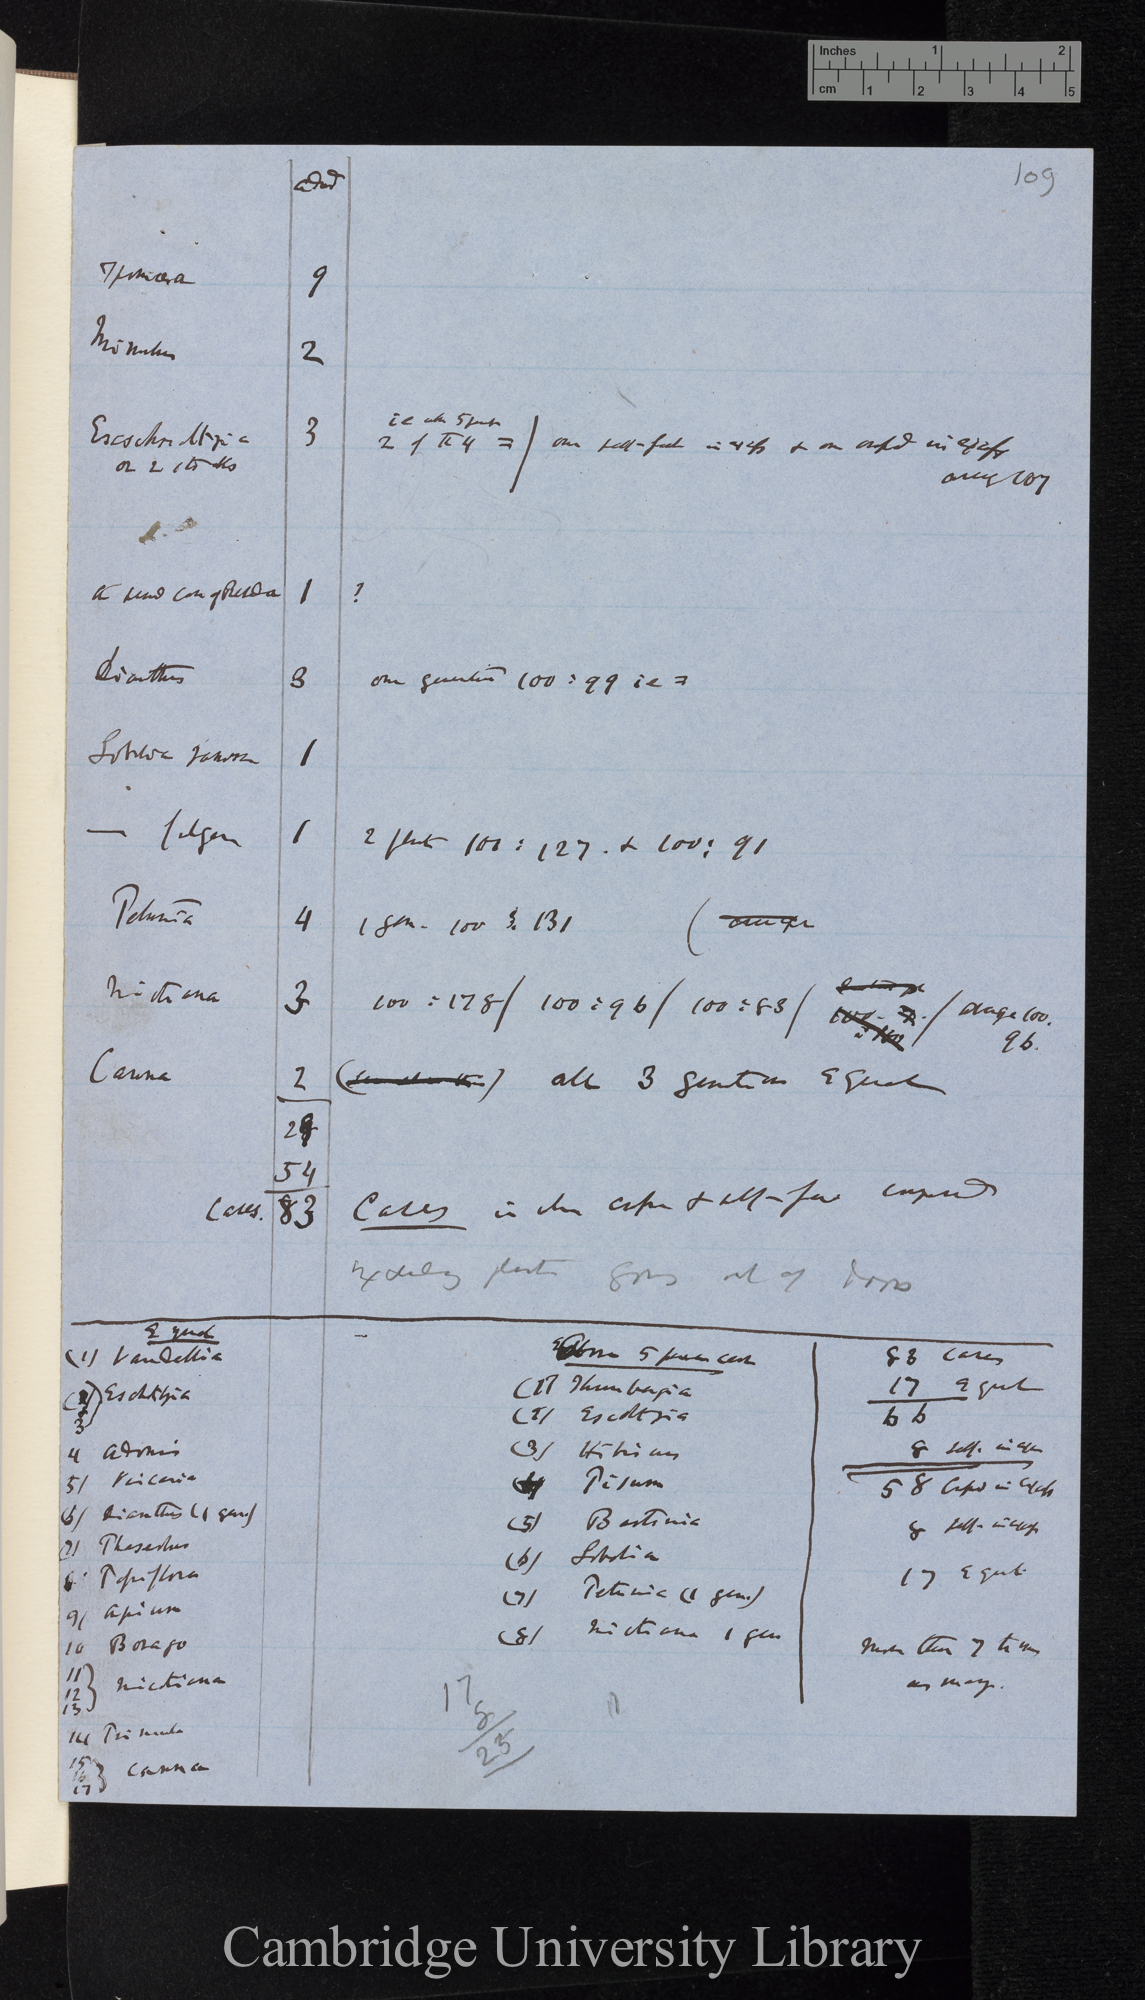 Inches 1 2
cm 1 2 3 4 5
109
add
Ipomœa 9
Mimulus 2
ie with 5 per
Eschscholtzia 3 2 of the 4 = / one self-fert in excess & one crossed in excess
or 2 stocks
average 107
1 ?
Dianthus 3 one generation 100 : 99 ie =
Lobelia ramosa 1
— fulgens 1 2 plants 100 : 127 . & 100 : 91
Petunia 4 1 gen. 100 : 131 (
Nicotiana 3 100 : 178 / 100 : 96 / 100 : 83 / average 100.
96.
Canna 2 all 3 generations equal
29
54
Cases. 83 Cases in which & self-fert compared
plants grown out of doors
Equal
(1) Vandellia
(2) Eschtzia
3
4 Adonis
5) Viscaria
(6) Dianthus (1 gen)
(7) Phaseolus
8 Passiflora
9) Apium
10 Borago
11
12 } Nicotiana
13
14 Primula
15
16 } Canna
17
Above 5 per cent
(1) Thunbergia
(2) Escoltzia
(3) Hibiscus
(4) Pisum
(5) Bartonia
(6) Lobelia
(7) Petunia (1 gen)
(8) Nicotiana 1 gen
17
8
25
83 cases
17 Equal
66
8 self. in excess
58 crossed in excess
8 self- in excess
17 Equal
more than 7 times
as many.
Cambridge University Library